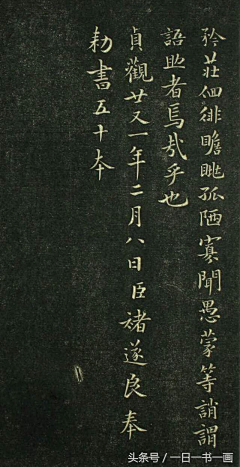 矜莊徘徊瞻眺孤陋寡聞愚蒙等誚謂
語助者焉哉乎也
貞觀廿又一年二月八日臣褚遂良奉
勑書五十本
头条号／一日一书一画